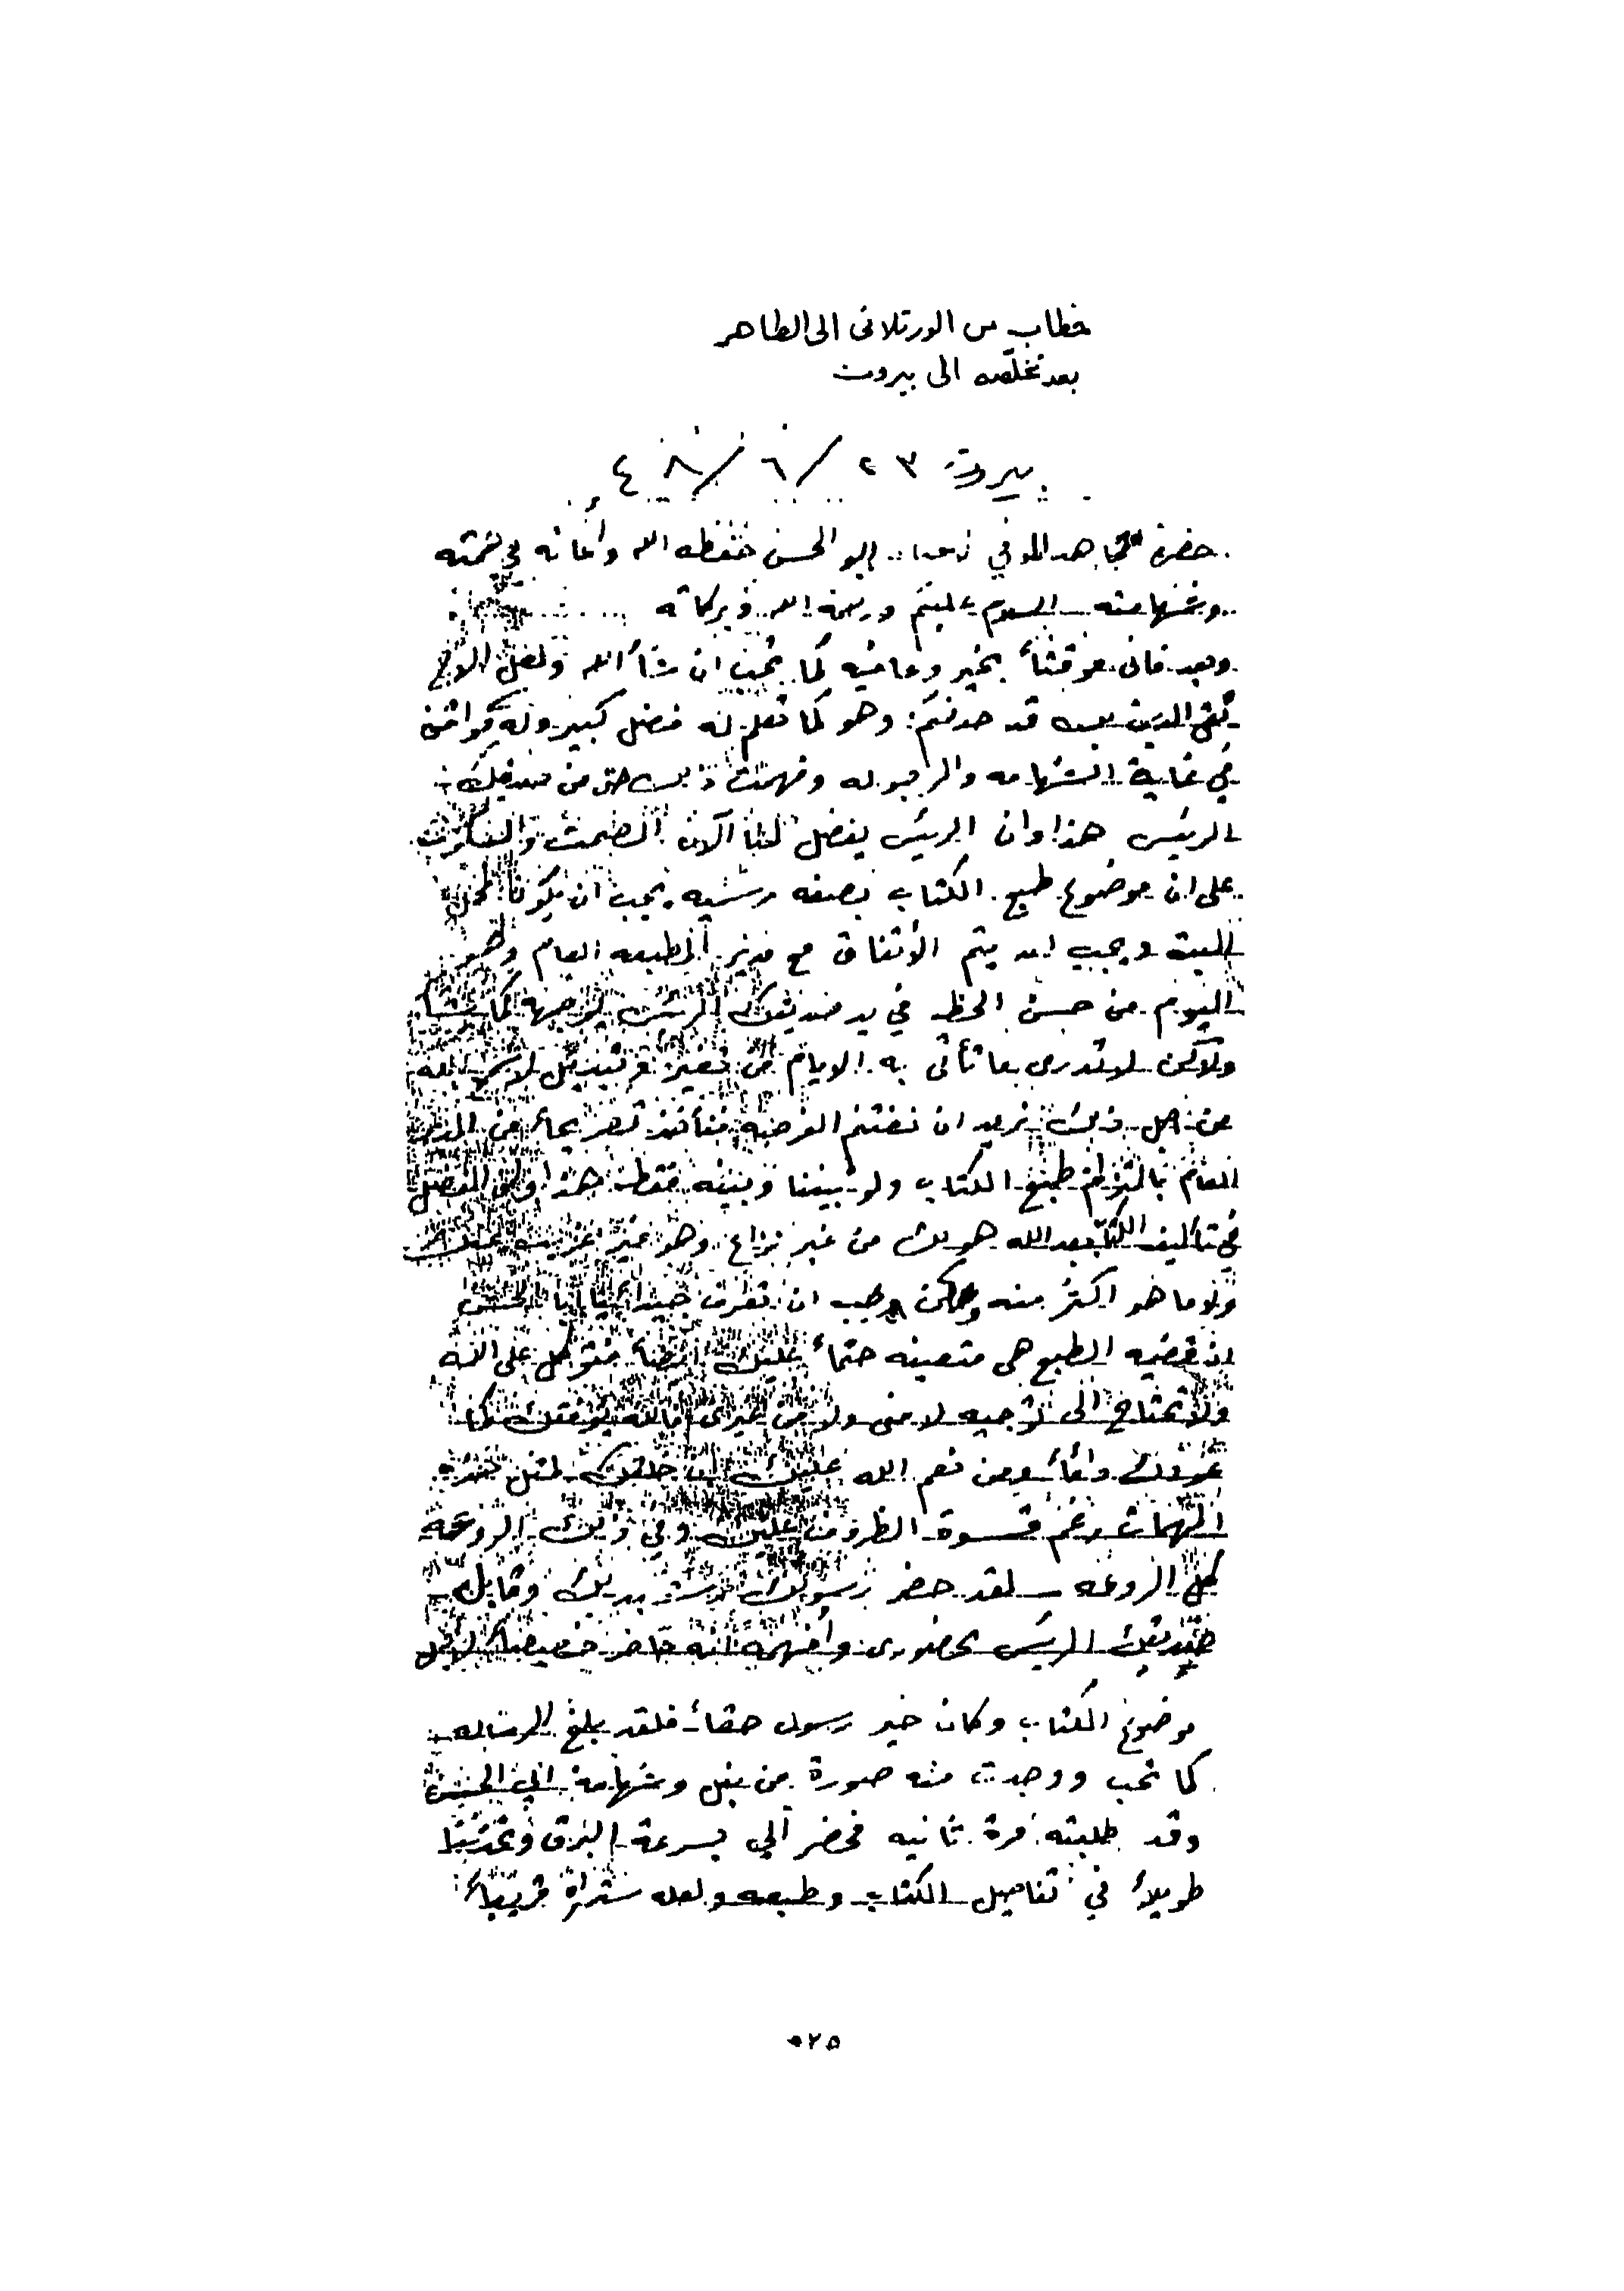 خطاب من الورتلانى الى الطاهر
بعد تخلّصه الى بيروت
بيروت ٢٣ / ٦ / ٤٨
حضرة المجاهد الموفي ابو الحسن حفظه الله وأعانه في
وشهامته السلام عليكم ورحمة الله وبركاته
وبعد فانى بخير وعافيه كما تحب ان شأ الله ولعل الأخ
تقى الدين قد حدثكم وهو كما تعلم له فضل كبير وله مواقف
في غاية الشهامه والرجوله وفهمت ذلك حتى من صديقك
الرئيس هذا وان الرئيس يفضل الآن الصمت والسكوت
على ان موضوع طبع الكتاب بصفه رسميه يجب ان يكون
البت ويجب ان يتم الأتفاق مع مدير المطبعه العام وهو
اليوم من حسن الحظ في يد صديقك الرئيس يوجهها كما يشأ
ولاكن لاندرى بما تأتى به الايام من تغير وتبديل
من اجل ذلك نريد ان نغتنم الفرصه فنأخذ تصريحاً من المدير
العام بالتزام طبع الكتاب ولو بيننا وبينه فقط هذا وان الفضل
في تأليف الكتاب بعد الله هو لك من غير نزاع وهو غير غريب عليك
ولا ما هو اكثر منه ولكن يجب ان تعرف جيداً يا ابا الحسن
ان قضيه الطبع هى متعينه حتماً عليك ايضاً فتوكل على الله
ولا تحتاج الى توجيه لا منى ولا من غيرى فالله يوفقك كما
عودك دائماً ومن نعم الله عليك ان خلقك لمثل هذه
المهمات رغم قسوة الظروف عليك وفى ذلك الروعه
كل الروعه ــ لقد حضر رسولك وقابل
صديقك الرئيس بحضورى وأفهمه انه حاضر خصيصاً لأجل
موضوع الكتاب وكان خير رسول حقاً فلقد بلغ الرساله
كما تحب ووجدت منه صورة من نبل وشهامة ابي الحسن
وقد طلبته مرة ثانيه فحضر الي بسرعة البرق وتحدثنا
طويلاً في تفاصيل الكتاب وطبعه ولعله ستراه قريباً
٥٢٥